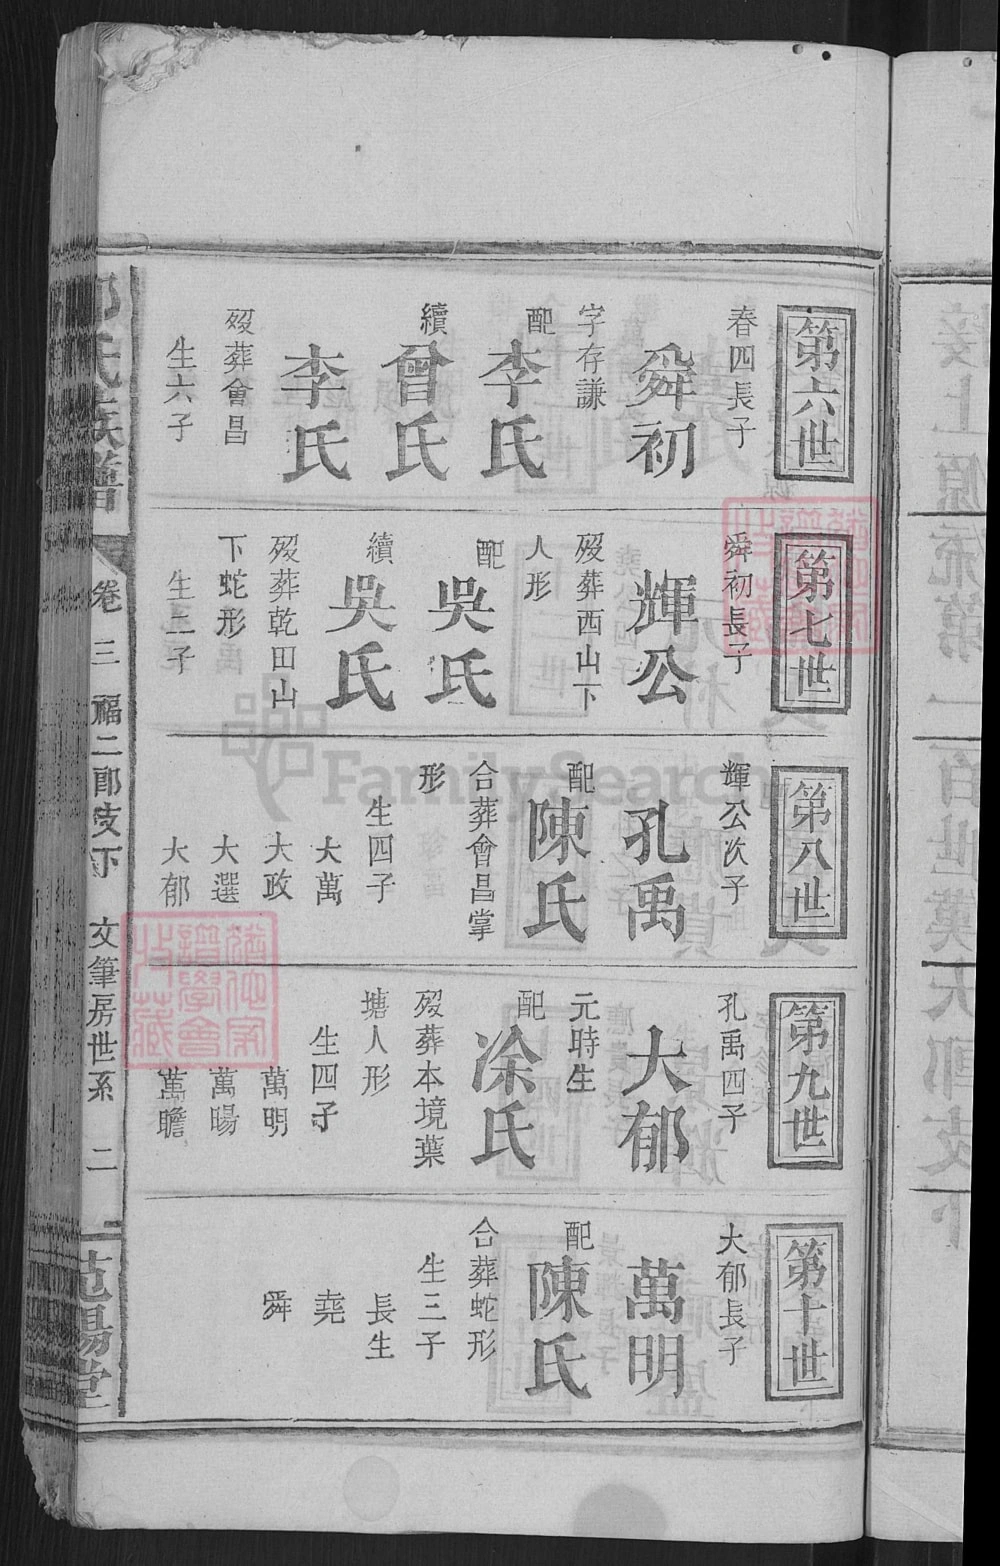 第六世
春四長子
舜初
字存謙
配
李氏
續
曾氏
李氏
歿葬會昌
生六子
第七世
舜初長子
輝公
歿葬西山下
人形
配
吳氏
續
吳氏
歿葬乾田山
下蛇形
生三子
第八世
輝公次子
孔禹
配
陳氏
合葬會昌掌
形
生四子
大萬
大政
大選
大郁
第九世
孔禹四子
大郁
元時生
配
凃氏
歿葬本境葉
塘人形
生四子
萬明
萬暘
萬瞻
第十世
大郁長子
萬明
配
陳氏
合葬蛇形
生三子
長生
堯
舜
氏族譜
卷三
福二郎支下
文筆房世系
二
范陽堂
FamilySearch